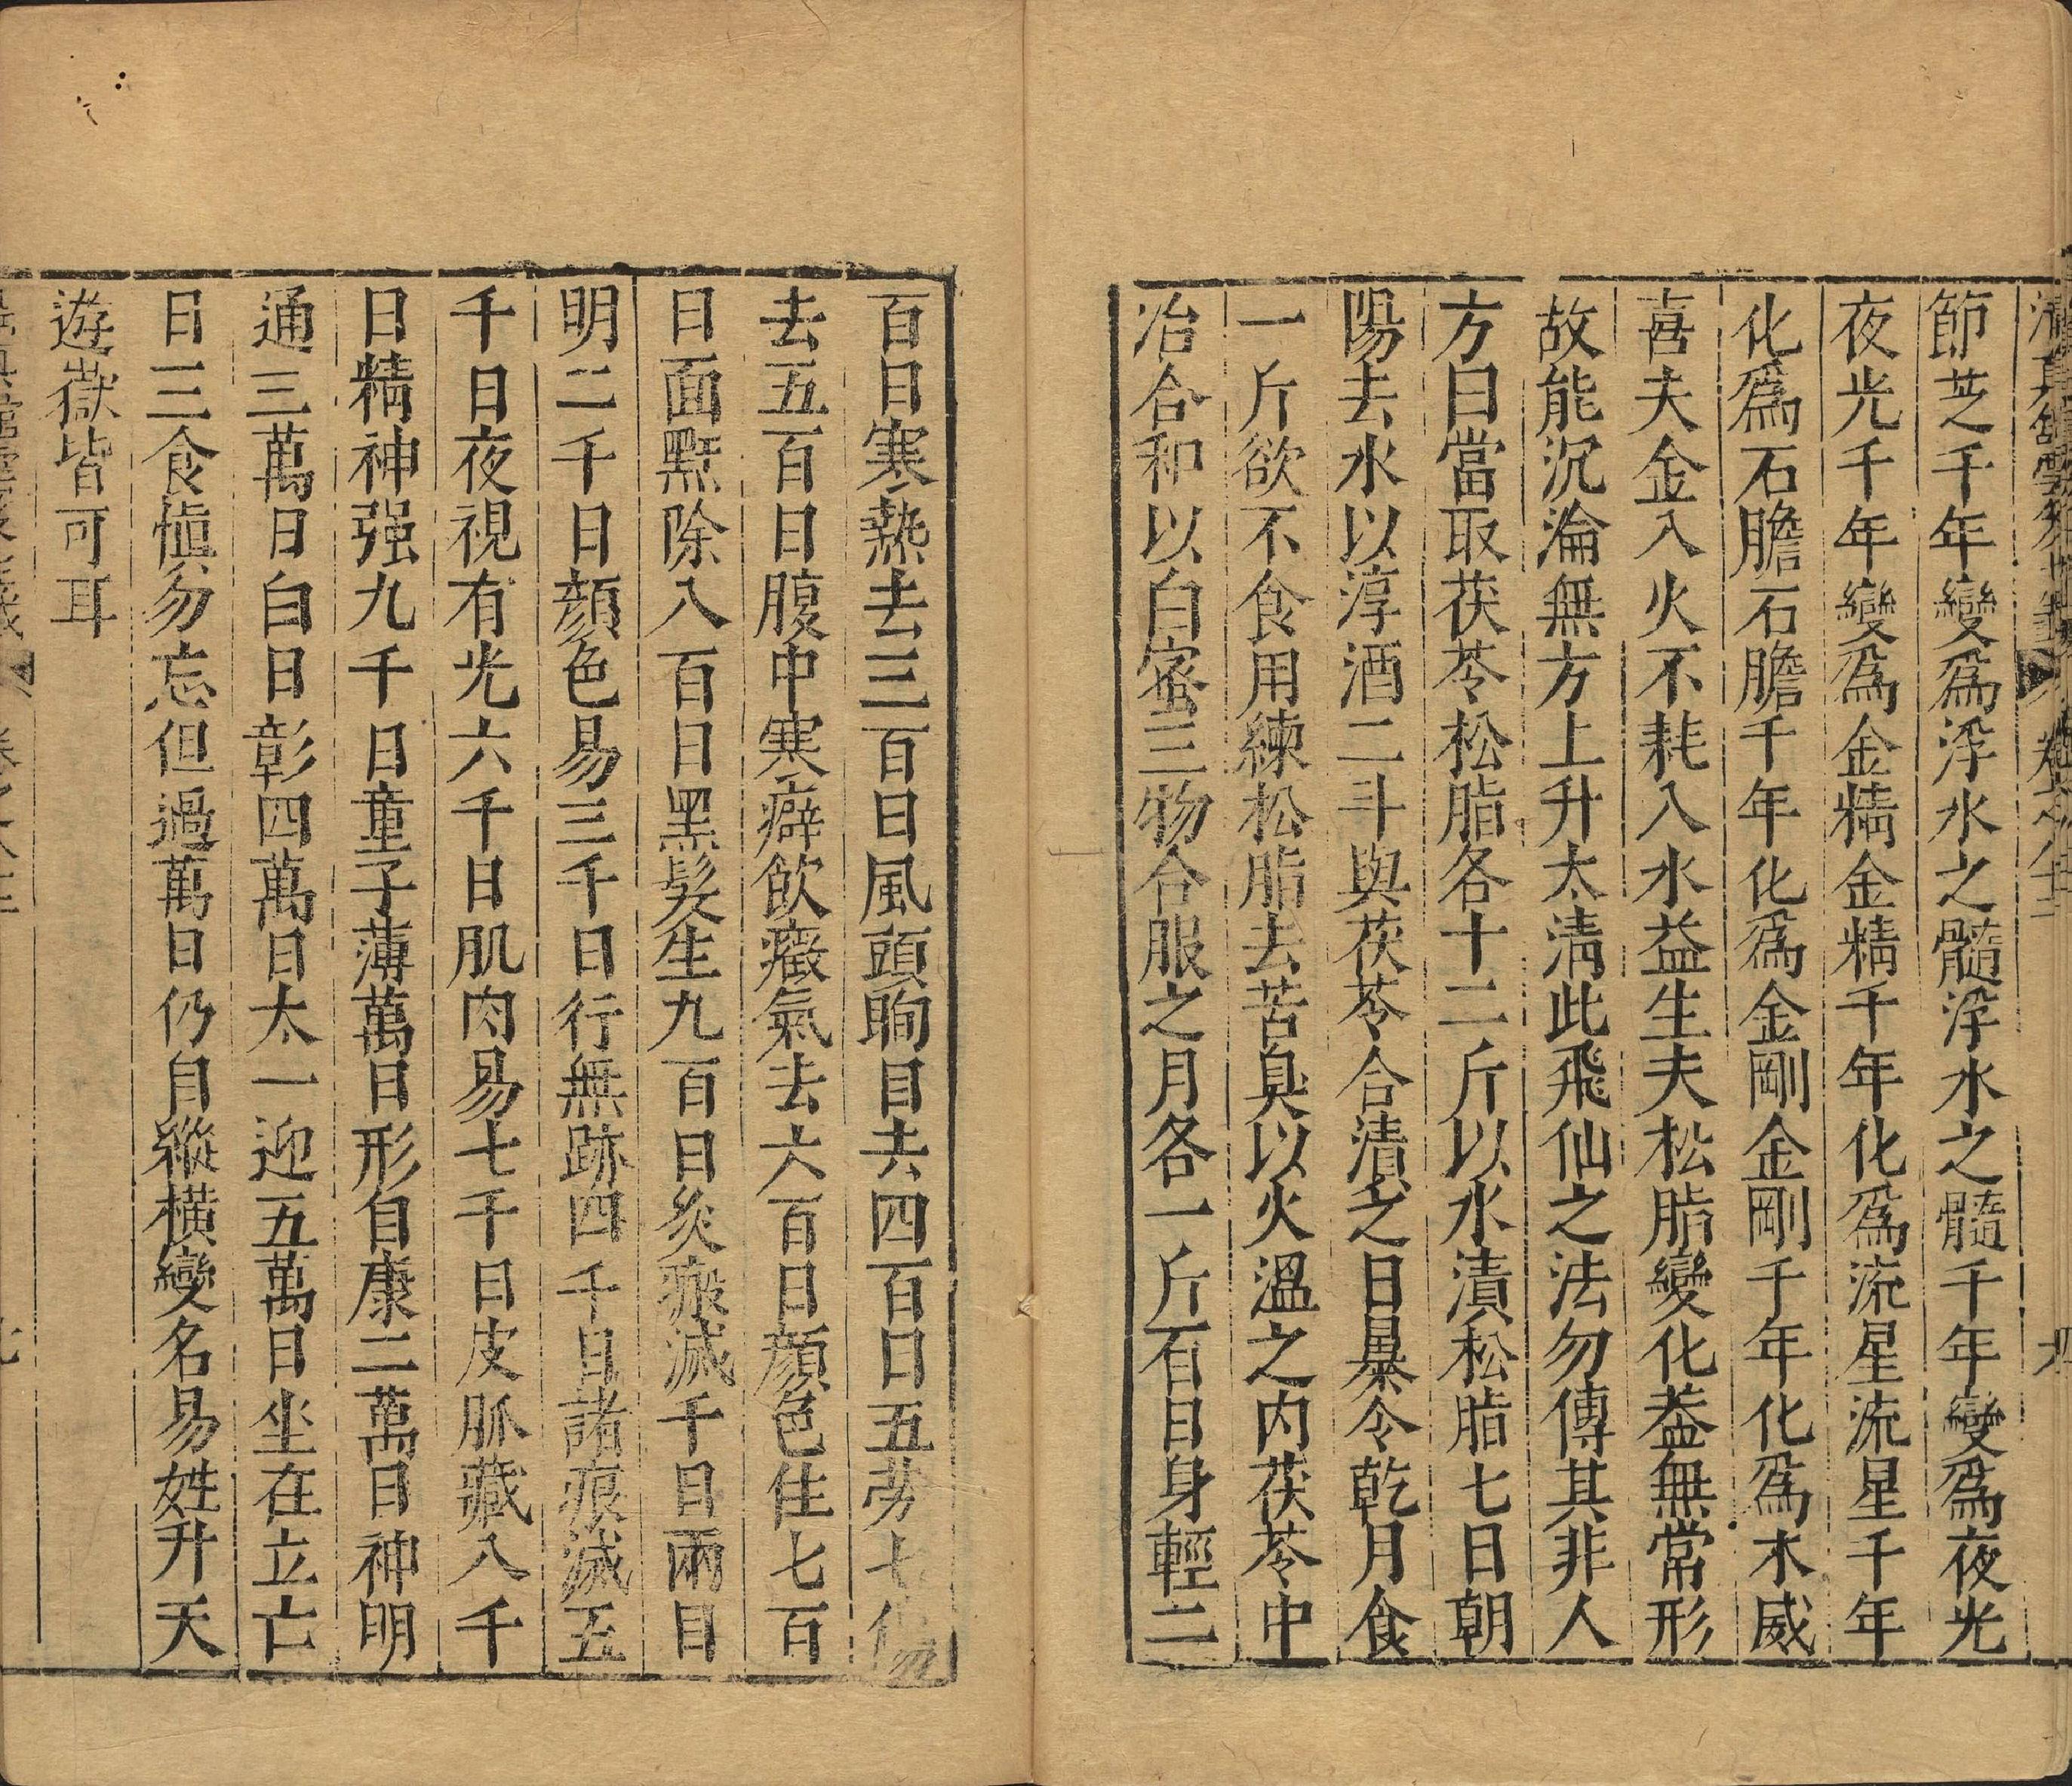 清真館雲笈七籤 卷之八十二
節芝千年變爲浮水之髓浮水之髓千年變爲夜光
夜光千年變爲金精金精千年化爲流星流星千年
化爲石膽石膽千年化爲金剛金剛千年化爲木威
喜夫金入火不耗入水益生夫松脂變化葢無常形
故能沉淪無方上升太清此飛仙之法勿傳其非人
方曰當取茯苓松脂各十二斤以水漬松脂七日朝
陽去水以淳酒二斗與茯苓合漬之日暴令乾月食
一斤欲不食用練松脂去苦臭以火溫之內茯苓中
冶合和以白蜜三物合服之月各一斤百日身輕二
百日寒熱去三百日風頭眴目去四百日五勞七傷
去五百日腹中寒癖飲癥氣去六百日顏色住七百
日面䵟除八百日黑髮生九百日灸瘢滅千日兩目
明二千日顏色易三千日行無跡四千日諸痕滅五
千日夜視有光六千日肌肉易七千日皮脈藏八千
日精神强九千日童子薄萬日形自康二萬日神明
通三萬日白日彰四萬日太一迎五萬日坐在立亡
日三食愼勿忘但過萬日仍自縱橫變名易姓升天
遊嶽皆可耳